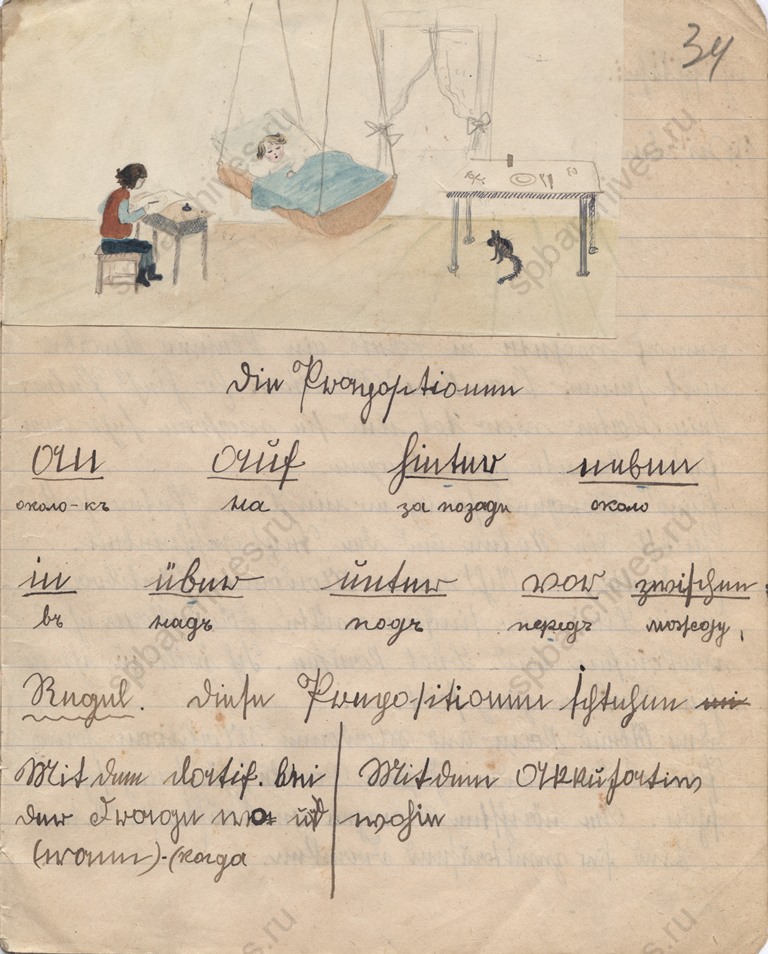 34
Die Präpositionen
an auf hinter neben
около-къ на за позади около
in über unter vor zwischen.
въ надъ подъ передъ между,
Regel. Diese Präpositionen schtehen mi
Mit dem Datif. bei
der Frage wo und
(wann)-(когда
Mit dem Akkusativ
wohin
spbarchives.ru